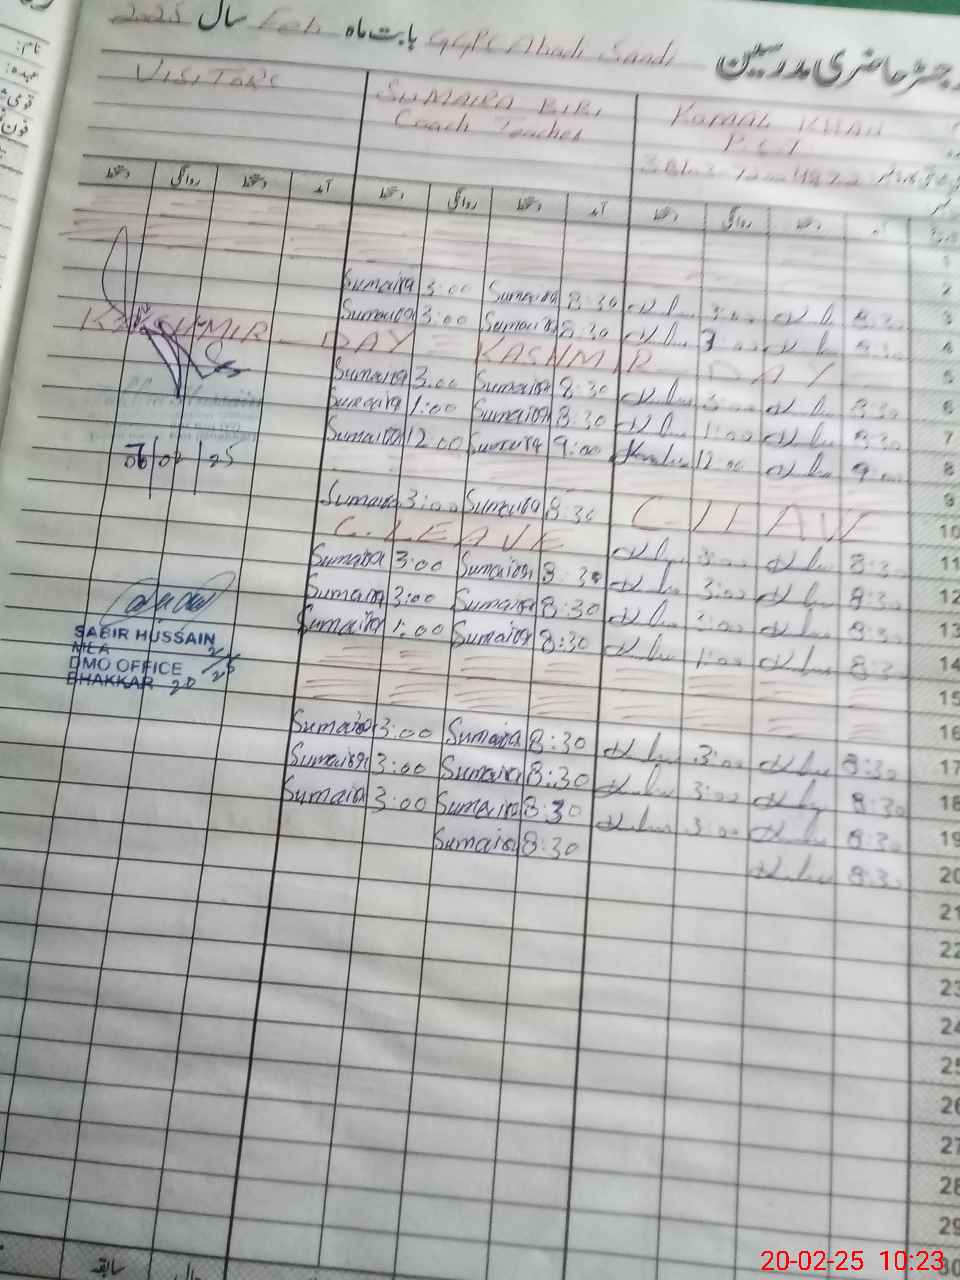 رجسٹر حاضری مدرسین GGPS Abadi Sandi بابت ماہ Feb سال 2025
VISITORS
SUMAIRA BIBI
Coach Teacher
KOMAL KHAN
P.S.T
دستخط روانگی دستخط آمد دستخط روانگی دستخط آمد دستخط روانگی دستخط آمد
1
2
Sumaira 3:00 Sumaira 8:30 3:00 8:30 3
Sumaira 3:00 Sumaira 8:30 3:00 8:30 4
KASHMIR DAY = KASHMIR DAY 5
Sumaira 3:00 Sumaira 8:30 3:00 8:30 6
Sumaira 1:00 Sumaira 8:30 1:00 8:30 7
Sumaira 12:00 Sumaira 9:00 12:00 9:00 8
9
Sumaira 3:00 Sumaira 8:30 C. LEAVE 10
C. LEAVE 3:00 8:30 11
Sumaira 3:00 Sumaira 8:30 3:00 8:30 12
Sumaira 3:00 Sumaira 8:30 3:00 8:30 13
Sumaira 1:00 Sumaira 8:30 1:00 8:30 14
15
16
Sumaira 3:00 Sumaira 8:30 3:00 8:30 17
Sumaira 3:00 Sumaira 8:30 3:00 8:30 18
Sumaira 3:00 Sumaira 8:30 3:00 8:30 19
Sumaira 8:30 8:30 20
21
22
23
24
25
26
27
28
29
30
02/25
SABIR HUSSAIN
MEA
DMO OFFICE
BHAKKAR
20
2/25
نام:
عہدہ:
سابقہ
20-02-25 10:23